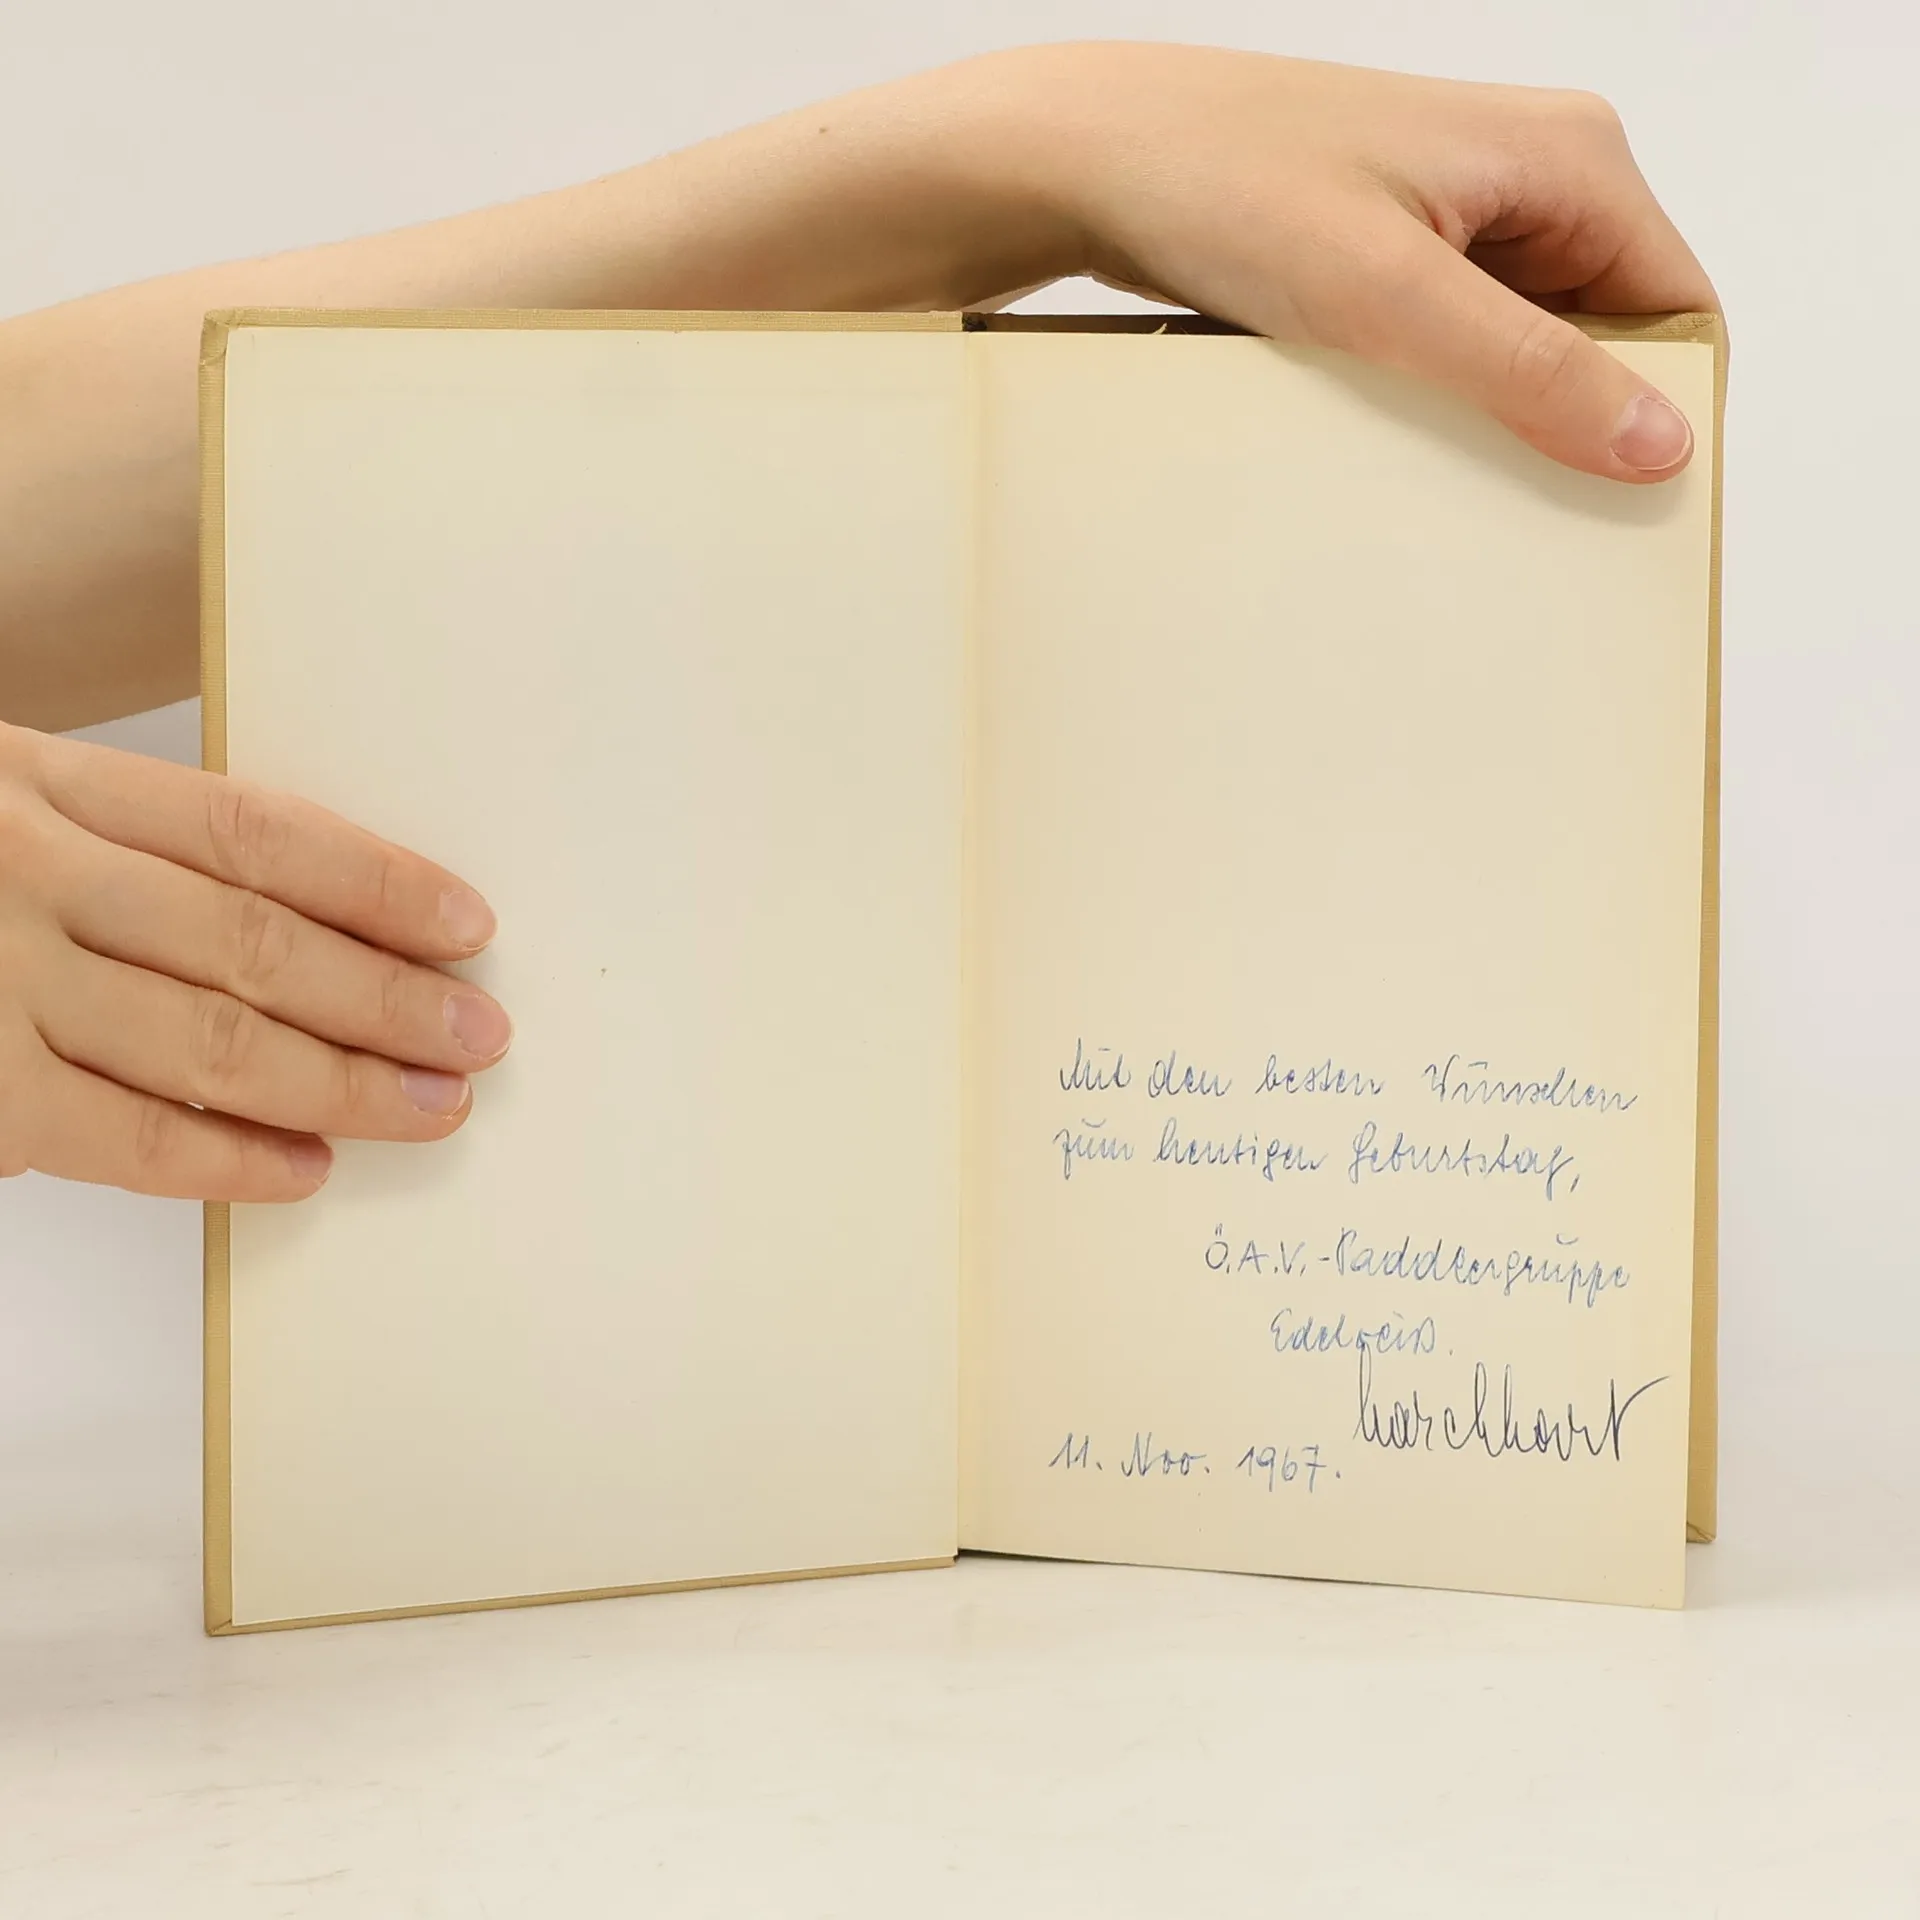 Mit den besten Wünschen
zum heutigen Geburtstag,
Ö.A.V.-Paddlergruppe
Edelweiß.
11. Nov. 1967.